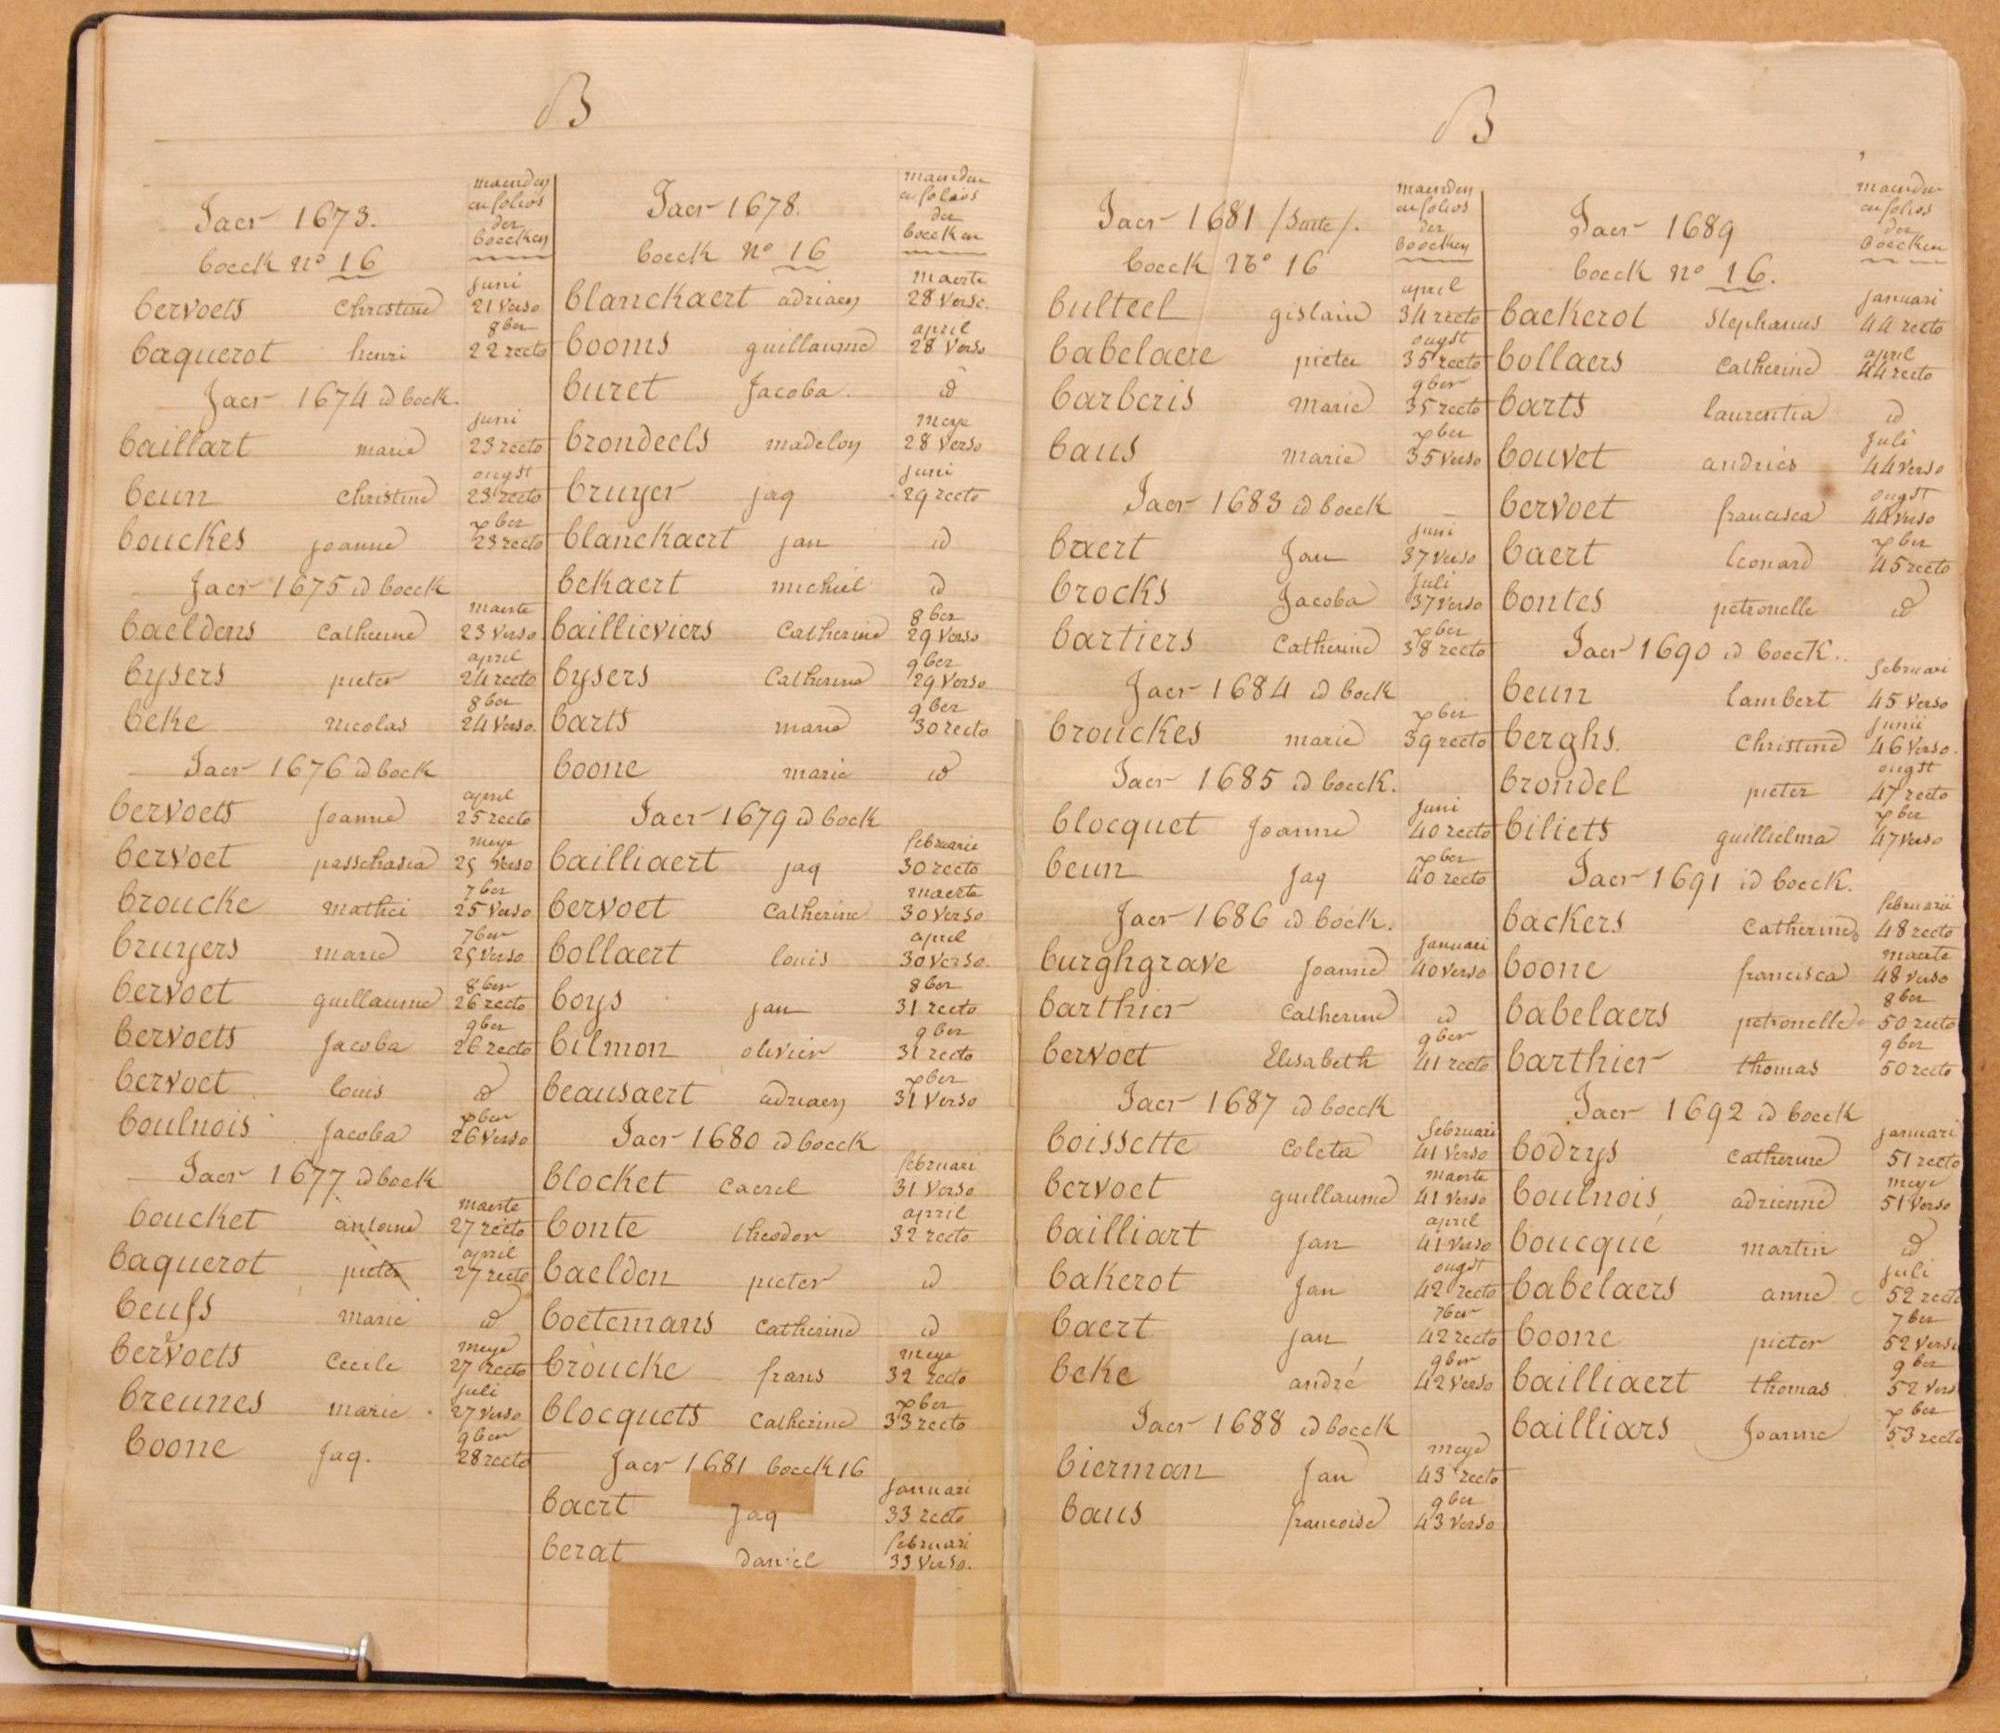 B
Jaer 1673.
maenden en folios der boecken
boeck nº 16
juni
bervoets Christine 21 verso
8ber
baquerot henri 22 recto
Jaer 1674 id boek.
juni
baillart marie 23 recto
ougst
beun Christine 23 recto
xber
bouckes joanne 23 recto
Jaer 1675 id boeck
maerte
baeldens Catherine 23 verso
april
bysers pieter 24 recto
8ber
beke nicolas 24 verso
Jaer 1676 id boek
april
bervoets joanne 25 recto
meye
bervoet passchasia 25 verso
7ber
broucke mathei 25 verso
7ber
bruyers marie 25 verso
8ber
bervoet guillaume 26 recto
9ber
bervoets jacoba 26 recto
bervoet louis id
xber
boulnois jacoba 26 verso
Jaer 1677 id boek
maerte
boucket antoine 27 recto
april
baquerot pieter 27 recto
beufs marie id
meye
bervoets Cecile 27 recto
juli
breunes marie 27 verso
9ber
boone jaq. 28 recto
Jaer 1678.
maenden en folios der boecken
boeck nº 16
maerte
blanckaert adriaen 28 verso.
april
booms guillaume 28 verso
buret Jacoba id
meye
brondeels madelon 28 verso
juni
bruyer jaq 29 recto
blanckaert jan id
bekaert michiel id
8ber
baillieviers Catherine 29 verso
9ber
bysers Catherine 29 verso
9ber
barts marie 30 recto
boone marie id
Jaer 1679 id boek
februarie
bailliaert jaq 30 recto
maerte
bervoet Catherine 30 verso
april
bollaert louis 30 verso.
8ber
boys jan 31 recto
9ber
bilmon olivier 31 recto
xber
beausaert adriaen 31 verso
Jaer 1680 id boeck
februari
blocket Caerel 31 verso
april
bonte theodor 32 recto
baelden pieter id
boetemans Catherine id
meye
broucke frans 32 recto
xber
blocquets Catherine 33 recto
Jaer 1681 boeck 16
januari
baert Jaq 33 recto
februari
berat daniel 33 verso.
B
Jaer 1681 /Suite/.
maenden en folios der boecken
boeck Nº 16
april
bulteel gislain 34 recto
ougst
babelaere pieter 35 recto
9ber
barberis Marie 35 recto
xber
baus marie 35 verso
Jaer 1683 id boeck
juni
braert Jan 37 verso
Juli
brocks Jacoba 37 verso
xber
bartiers Catherine 38 recto
Jaer 1684 id boek
xber
brouckes marie 39 recto
Jaer 1685 id boeck.
juni
blocquet Joanne 40 recto
xber
beun jaq 40 recto
Jaer 1686 id boek.
januari
burghgrave Joanne 40 verso
barthier Catherine id
9ber
bervoet Elisabeth 41 recto
Jaer 1687 id boeck
februari
boissette Coleta 41 verso
maerte
bervoet guillaume 41 verso
april
bailliart Jan 41 verso
ougst
bakerot Jan 42 recto
7ber
baert jan 42 recto
9ber
beke andré 42 verso
Jaer 1688 id boeck
meye
bierman Jan 43 recto
9ber
baus francoise 43 verso
Jaer 1689
maenden en folios der boecken
boeck nº 16.
januari
backerot Stephanus 44 recto
april
bollaers Catherine 44 recto
barts laurentia id
juli
bouvet andries 44 verso
ougst
bervoet francisca 44 verso
xber
baert leonard 45 recto
bontes petronelle id
Jaer 1690 id boeck.
februari
beun lambert 45 verso
junii
berghs. Christine 46 verso.
ougst
brondel pieter 47 recto
xber
biliets guillielma 47 verso
Jaer 1691 id boeck.
februarii
backers Catherine 48 recto
maerte
boone francisca 48 verso
8ber
babelaers petronelle 50 recto
9ber
barthier thomas 50 recto
Jaer 1692 id boeck
januari
bodrys Catherine 51 recto
meye
boulnois adrienne 51 verso
boucqué martin id
juli
babelaers anne 52 recto
7ber
boone pieter 52 verso
9ber
bailliaert thomas 52 vers
xber
bailliars Joanne 53 recto